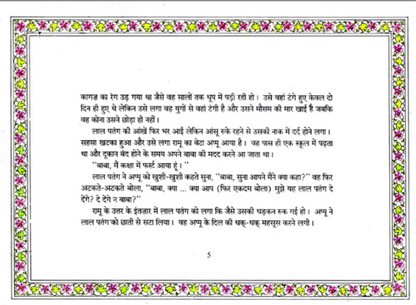 कागज़ का रंग उड़ गया था जैसे वह सालों तक धूप में पड़ी रही हो। उसे वहां टंगे हुए केवल दो
दिन ही हुए थे लेकिन उसे लगा वह युगों से वहां टंगी है और उसने मौसम की मार खाई है जबकि
वह कोना उसने छोड़ा ही नहीं।
लाल पतंग की आंखें फिर भर आईं लेकिन आंसू रुके रहने से उसकी नाक में दर्द होने लगा।
सहसा खटका हुआ और उसे लगा रामू का बेटा अप्पू आया है। वह पास ही एक स्कूल में पढ़ता
था और दूकान बंद होने के समय अपने बाबा की मदद करने आ जाता था।
"बाबा, मैं कक्षा में फर्स्ट आया हूं।"
लाल पतंग ने अप्पू को खुशी-खुशी कहते सुना, "बाबा, सुना आपने मैंने क्या कहा?" वह फिर
अटकते-अटकते बोला, "बाबा, क्या ... क्या आप (फिर एकदम बोला) मुझे यह लाल पतंग दे
देंगे? दे देंगे न बाबा?"
रामू के उत्तर के इंतज़ार में लाल पतंग को लगा कि जैसे उसकी धड़कन रुक गई हो। अप्पू ने
लाल पतंग को छाती से सटा लिया। वह अप्पू के दिल की धक्-धक् महसूस करने लगी।
5